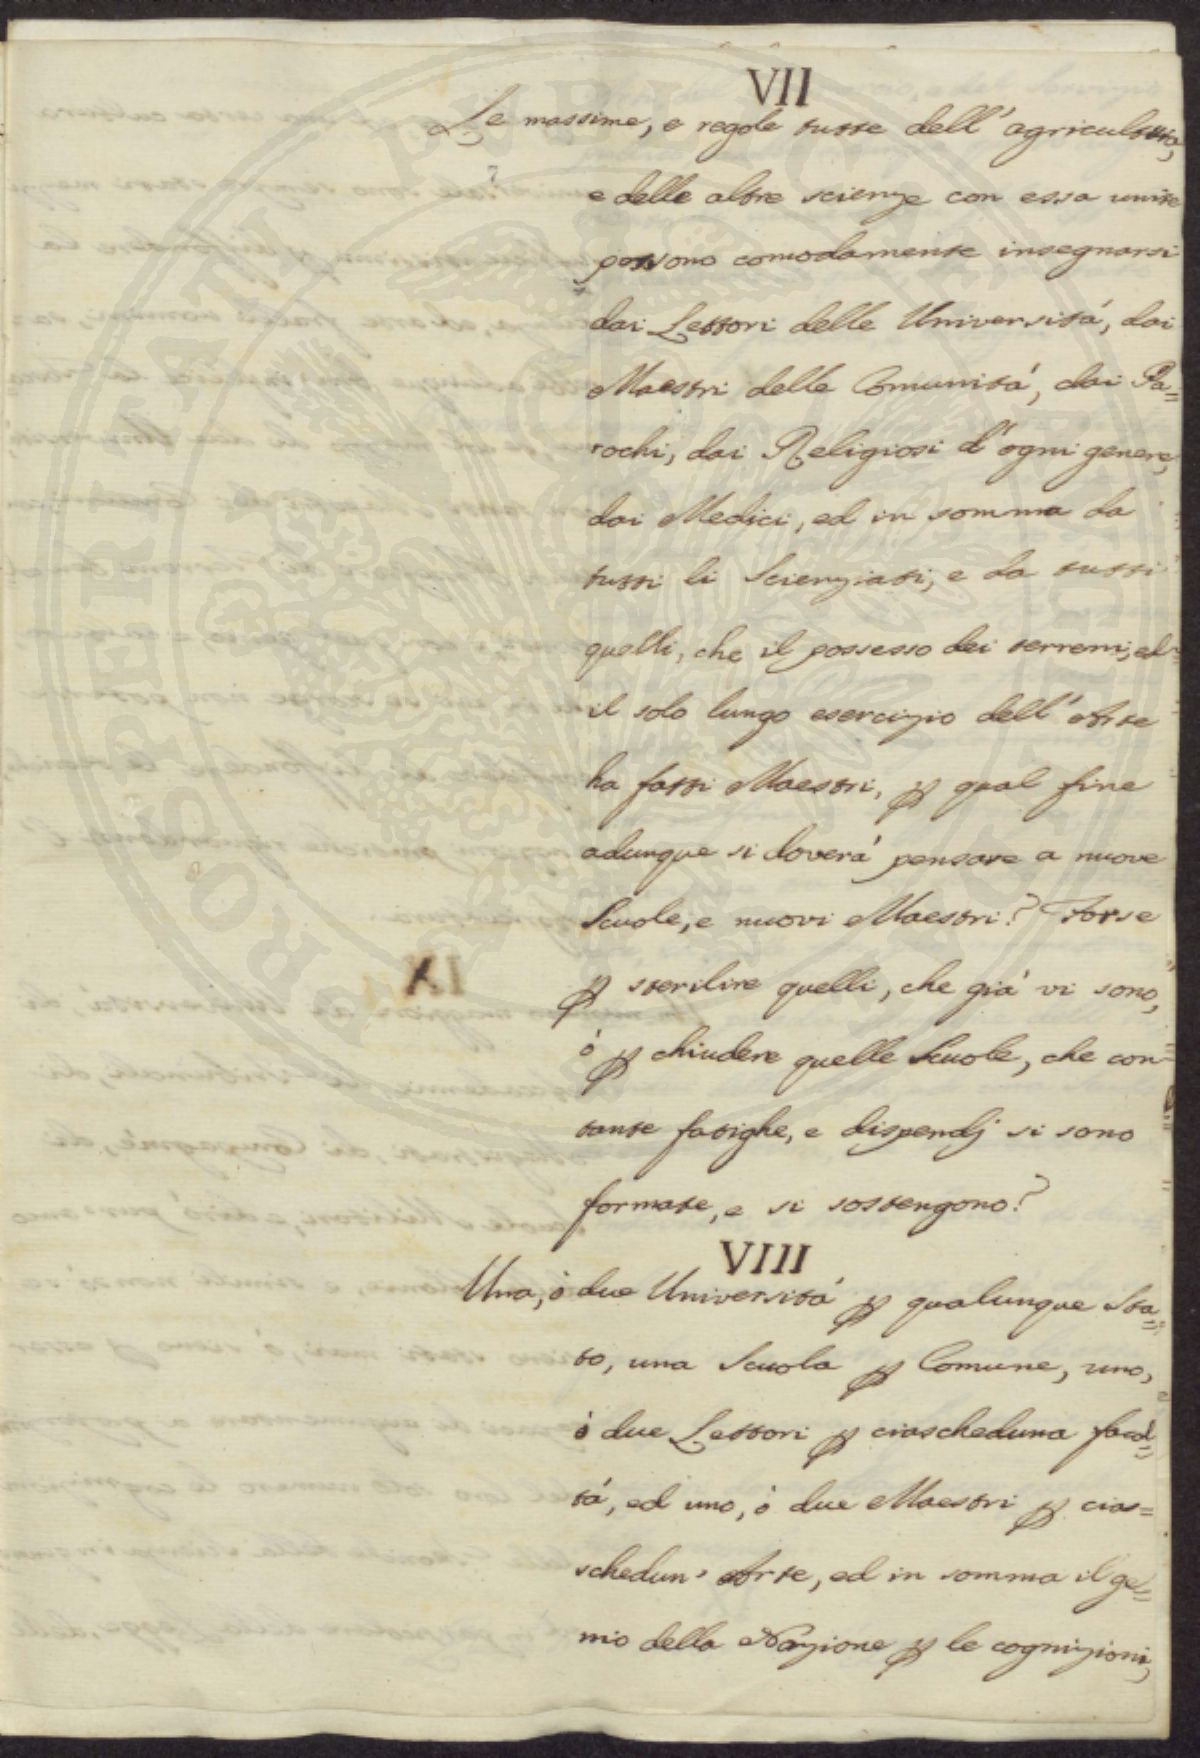 VII
Le massime, e regole tutte dell' agricultura,
e delle altre scienze con essa unite
possono comodamente insegnarsi
dai Lettori delle Universitá, dai
Maestri delle Comunitá, dai Pa=
rochi, dai Religiosi d' ogni genere,
dai Medici, ed in somma da
tutti li Scienziati, e da tutti
quelli, che il possesso dei terreni, ed
il solo lungo esercizio dell' Arte
ha fatti Maestri, ꝑ qual fine
adunque si doverá pensare a nuove
Scuole, e nuovi Maestri? Forse
ꝑ sterilire quelli, che giá vi sono,
ó ꝑ chiudere quelle Scuole, che con
tante fatighe, e dispendj si sono
formate, e si sostengono?
VIII
Una, ó due Universitá ꝑ qualunque Sta=
to, una Scuola ꝑ Comune, uno,
ó due Lettori ꝑ ciascheduna facol=
tá, ed uno, ó due Maestri ꝑ cias=
schedun' Arte, ed in somma il ge=
nio della Nazione ꝑ le cognizioni,